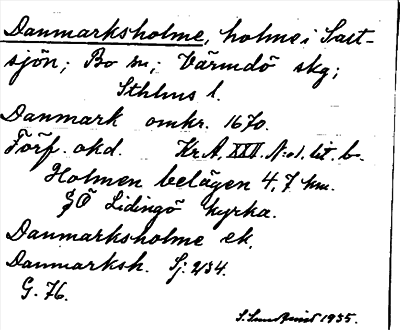 Danmarksholme, holme i Salt-
sjön; Bo sn; Värmdö skg;
Sthlms l.
Danmark omkr. 1670.
Förf. okd. Kr.A, XXX. N:o1. lit. b.
Holmen belägen 4,7 km.
S Ö Lidingö kyrka.
Danmarksholme ek.
Danmarksh. Sj: 234.
G. 76.
S. Sundqvist 1935.